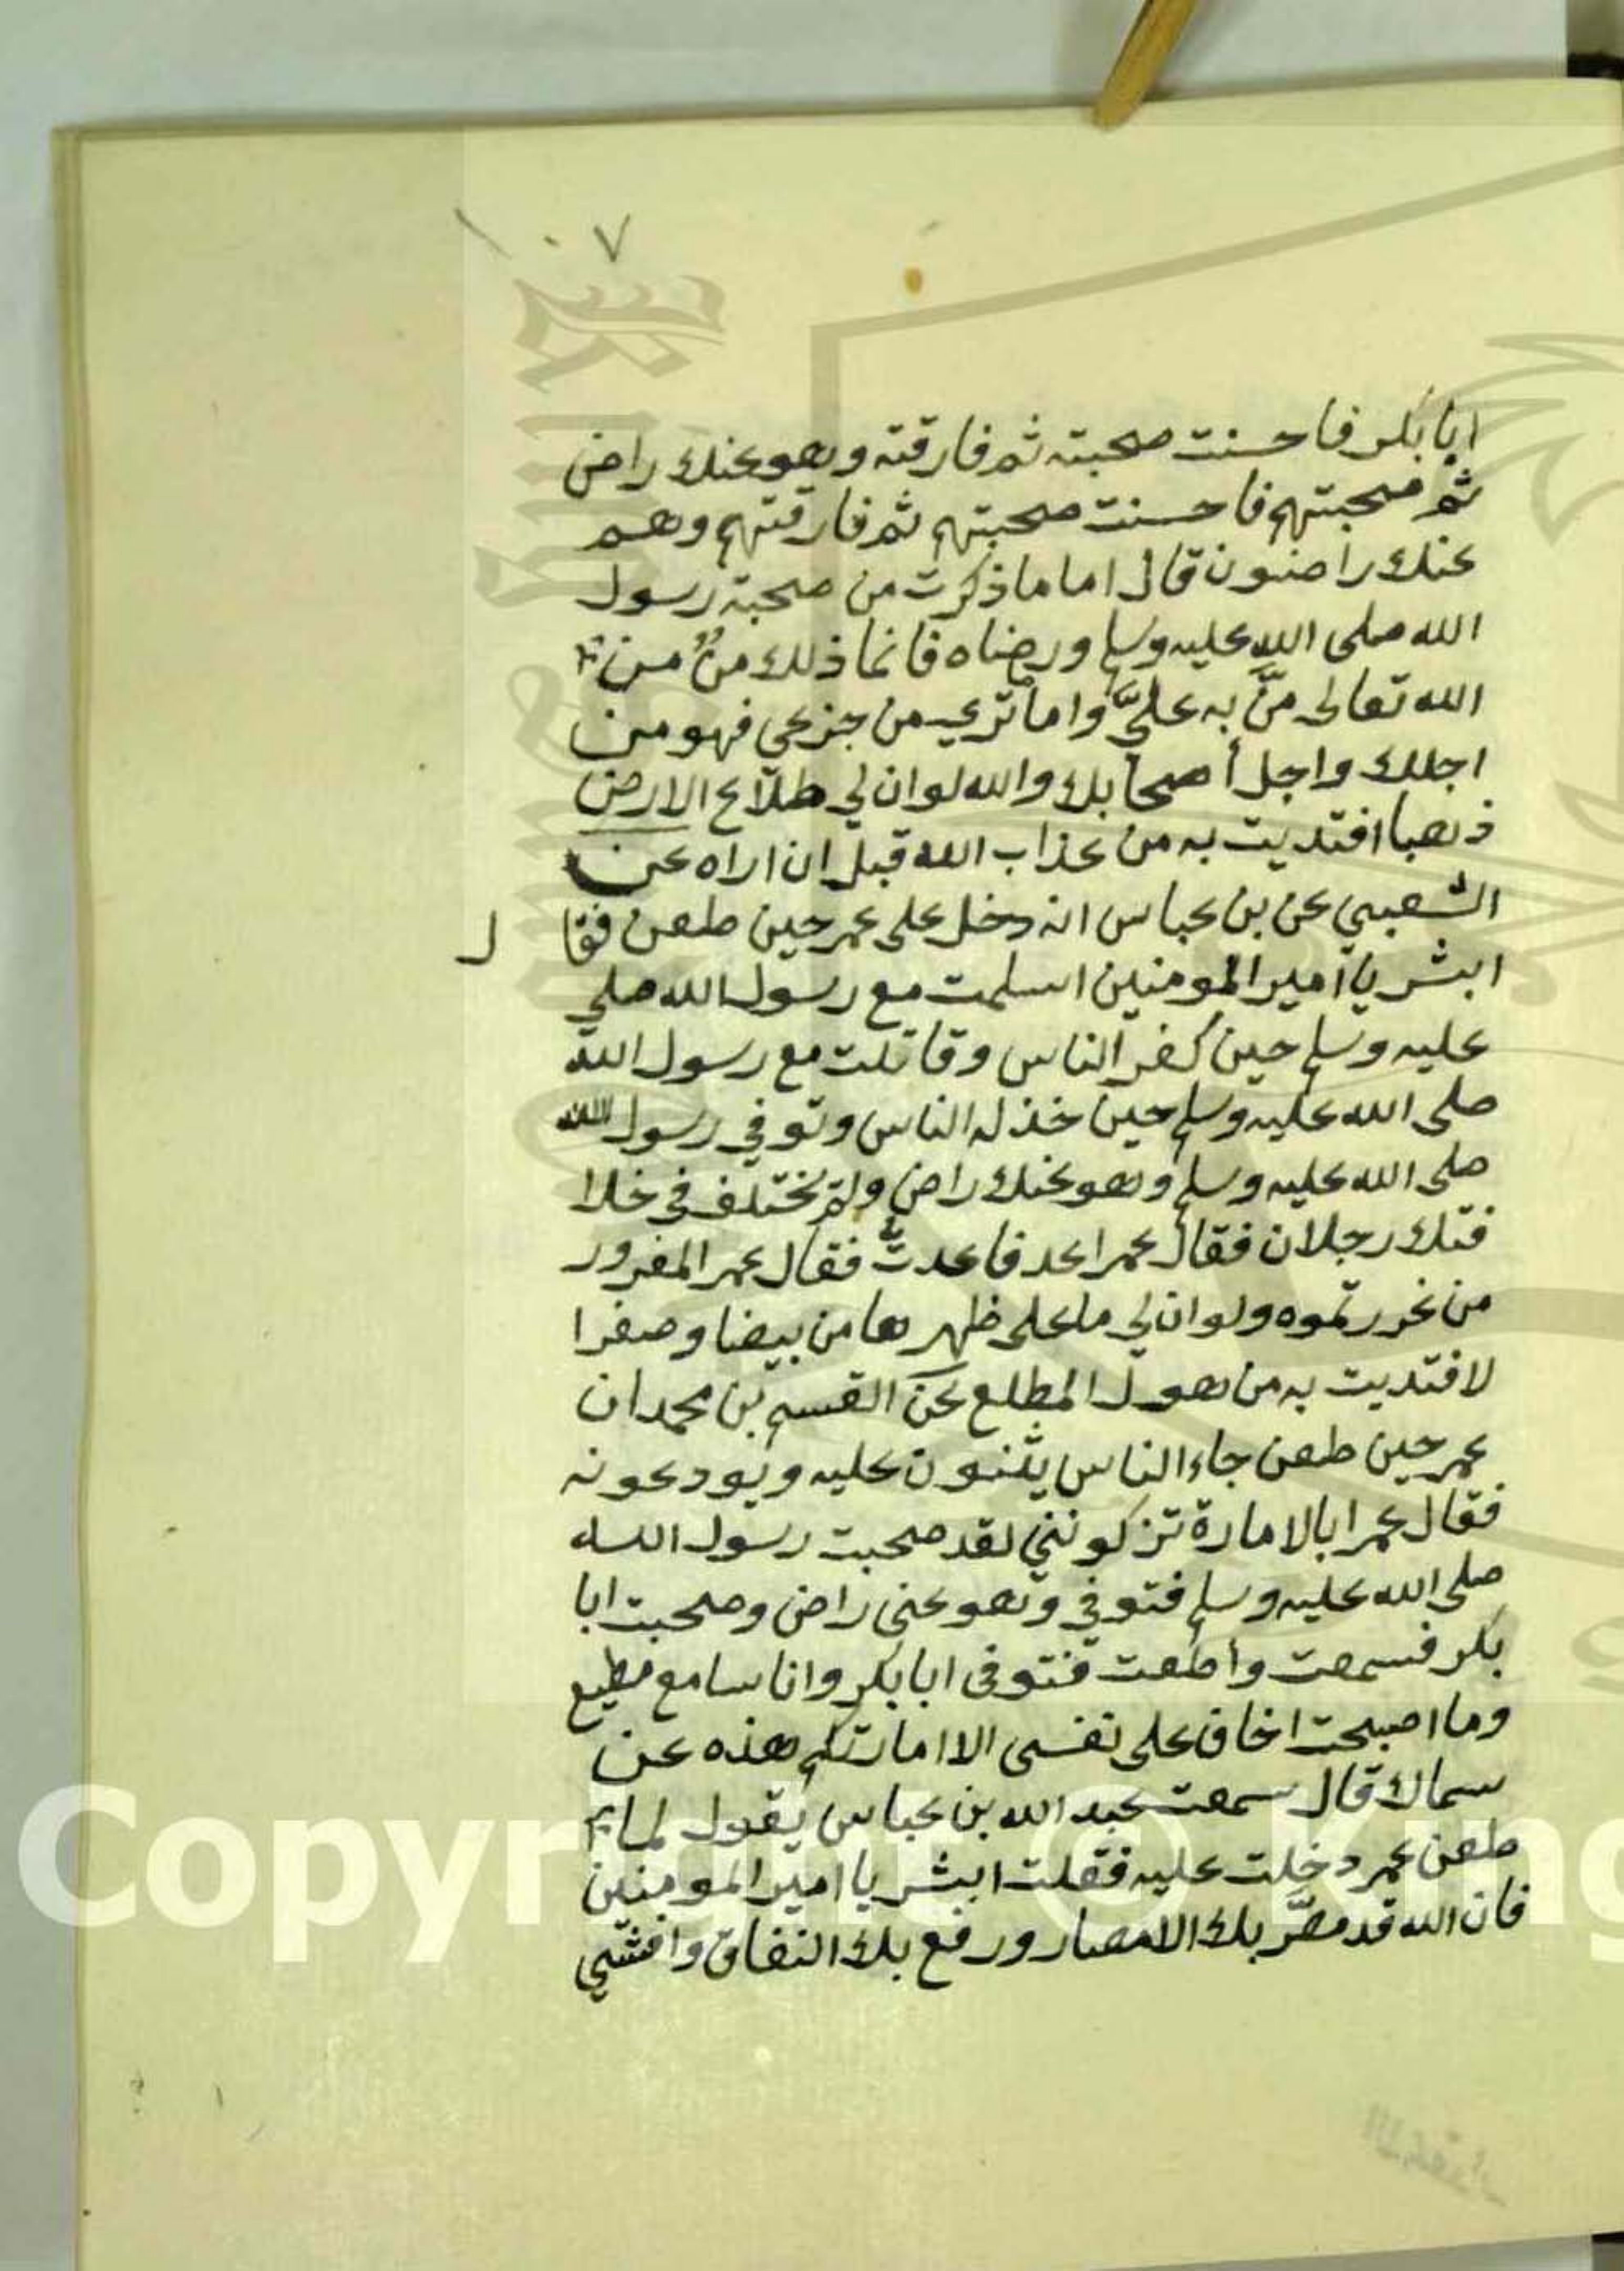 ١٠٧
ابا بكر فاحسنت صحبته ثم فارقته وهو عنك راض
ثم صحبتهم فاحسنت صحبتهم ثم فارقتهم وهم
عنك راضون قال اما ما ذكرت من صحبة رسول
الله صلى الله عليه وسلم ورضاه فانما ذلك منٌ من
الله تعالى منَّ به عليَّ واما ترى من جزعي فهو من
اجلك واجل أصحابك والله لو ان لي طلاع الارض
ذهبا افتديت به من عذاب الله قبل ان اراه عن
الشعبي عن بن عباس انه دخل على عمر حين طعن فقا ل
ابشر يا امير المومنين اسلمت مع رسول الله صلي
عليه وسلم حين كفر الناس وقاتلت مع رسول الله
صلى الله عليه وسلم حين خذله الناس وتوفي رسول الله
صلى الله عليه وسلم وهو عنك راض ولم يختلف في خلا
فتك رجلان فقال عمر اعد فاعدتُ فقال عمر المغرور
من غررتموه ولو ان لي ما على ظهرها من بيضا وصفرا
لافتديت به من هول المطلع عن القسم بن محمد ان
عمر حين طعن جاء الناس يثنون عليه ويودعونه
فقال عمر ابالامارة تزكونني لقد صحبت رسول الله
صلى الله عليه وسلم فتوفي وهو عني راض وصحبت ابا
بكر فسمعت وأطعت فتوفى ابا بكر وانا سامع مطيع
وما اصبحت اخاف على نفسى الا امارتكم هذه عن
سماك قال سمعت عبد الله بن عباس يقول لما
طعن عمر دخلت عليه فقلت ابشر يا امير المومنين
فان الله قد مصَّر بك الامصار ورفع بك النفاق وافشي
Copyright © King